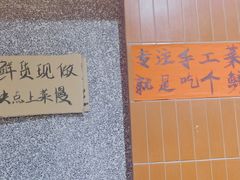 鲜货现做
点上菜慢
专注手工菜
就是吃个鲜